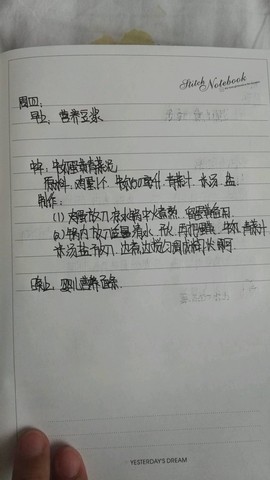 Stitch Notebook
周四:
早上: 营养豆浆
中午: 牛奶蛋黄青菜泥
原料: 鸡蛋1个、牛奶 青菜汁、米汤、盐.
制作:
(1) 鸡蛋放入凉水锅中火煮熟, 留蛋黄备用
(2) 锅内放入适量清水, 开火, 再把蛋黄、牛奶、青菜汁
米汤 盐放入, 边煮边搅匀
晚上: 婴儿营养面条
YESTERDAY'S DREAM